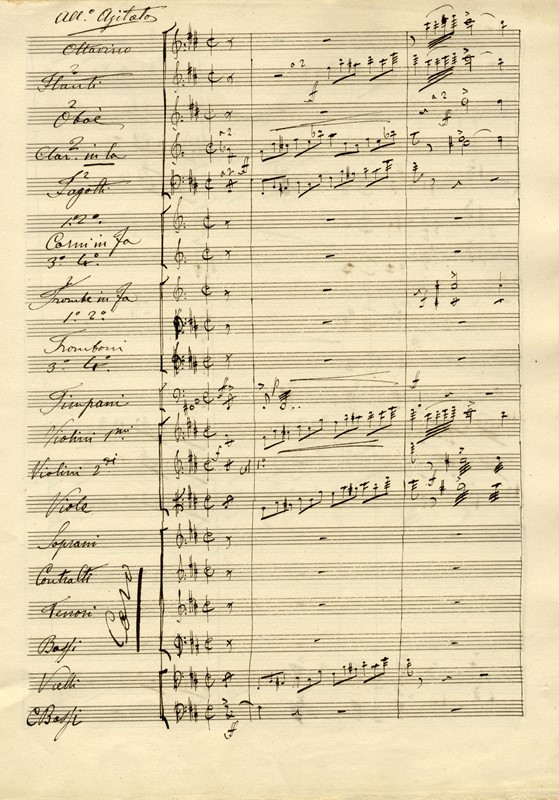 All.º Agitato
Ottavino
2
Flauti
a 2
ff
2
Oboè
a 2
ff
2
Clar. in la
a 2
ff
2
Fagotti
a 2
1º 2º
Corni in Fa
3º 4º
Trombe in Fa
1º 2º
Tromboni
3º 4º
Timpani
Violini 1mi
Violini 2di
Viole
Soprani
Contralti
Coro
Tenori
Bassi
Vcelli
C Bassi
ff